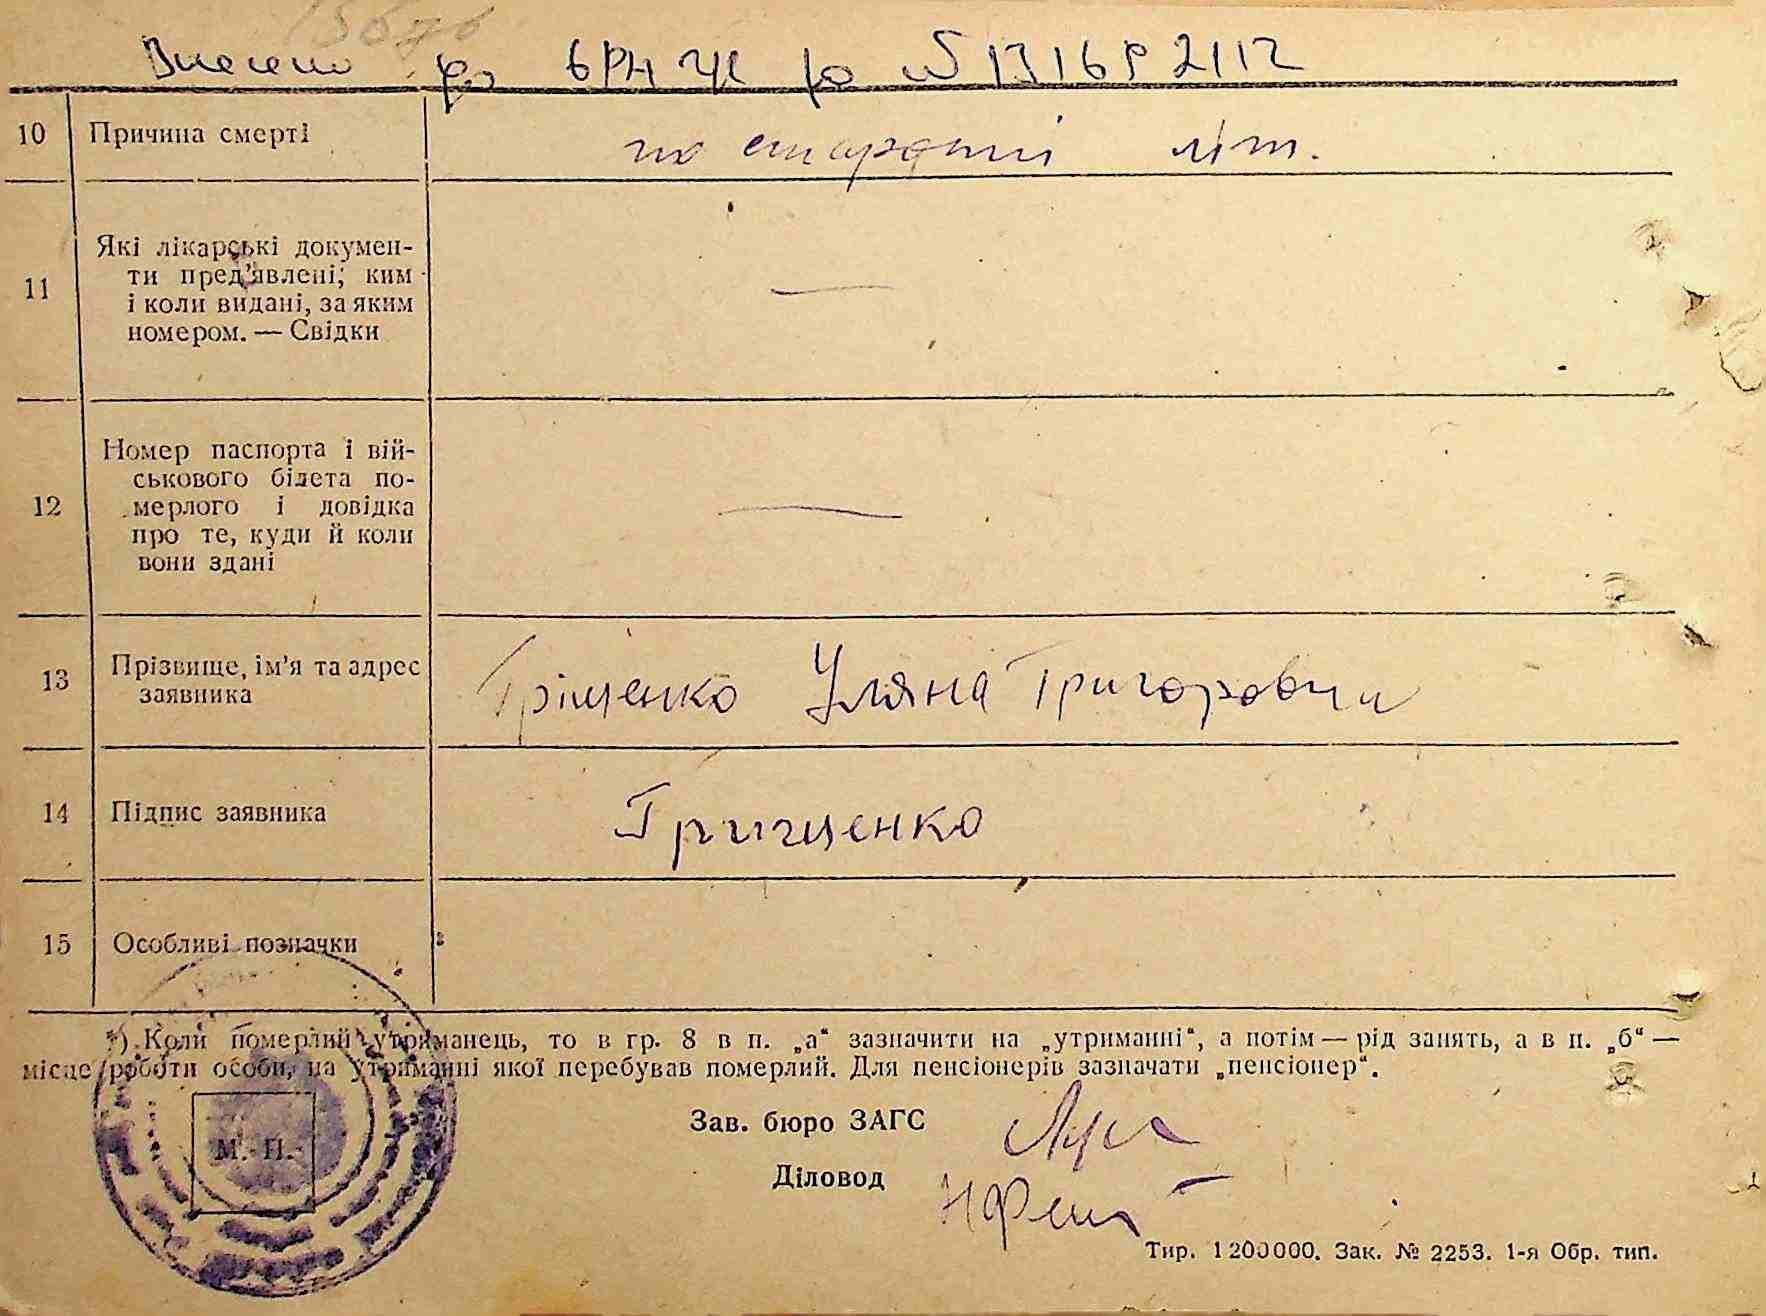 Внесено до
10 Причина смерті по старості літ.
11 Які лікарські докумен-
ти пред'явлені; ким
і коли видані, за яким
номером. — Свідки —
12 Номер паспорта і вій-
ськового білета по-
мерлого і довідка
про те, куди й коли
вони здані —
13 Прізвище, ім'я та адрес
заявника Гріщенко Уляна Григоровни
14 Підпис заявника Грищенко
15 Особливі позначки
*) Коли померлий утриманець, то в гр. 8 в п. „а“ зазначити на „утриманні“, а потім — рід занять, а в п. „б“ —
місце роботи особи, на утриманні якої перебував померлий. Для пенсіонерів зазначати „пенсіонер“.
Зав. бюро ЗАГС
М. П.
Діловод
Тир. 1200000. Зак. № 2253. 1-я Обр. тип.